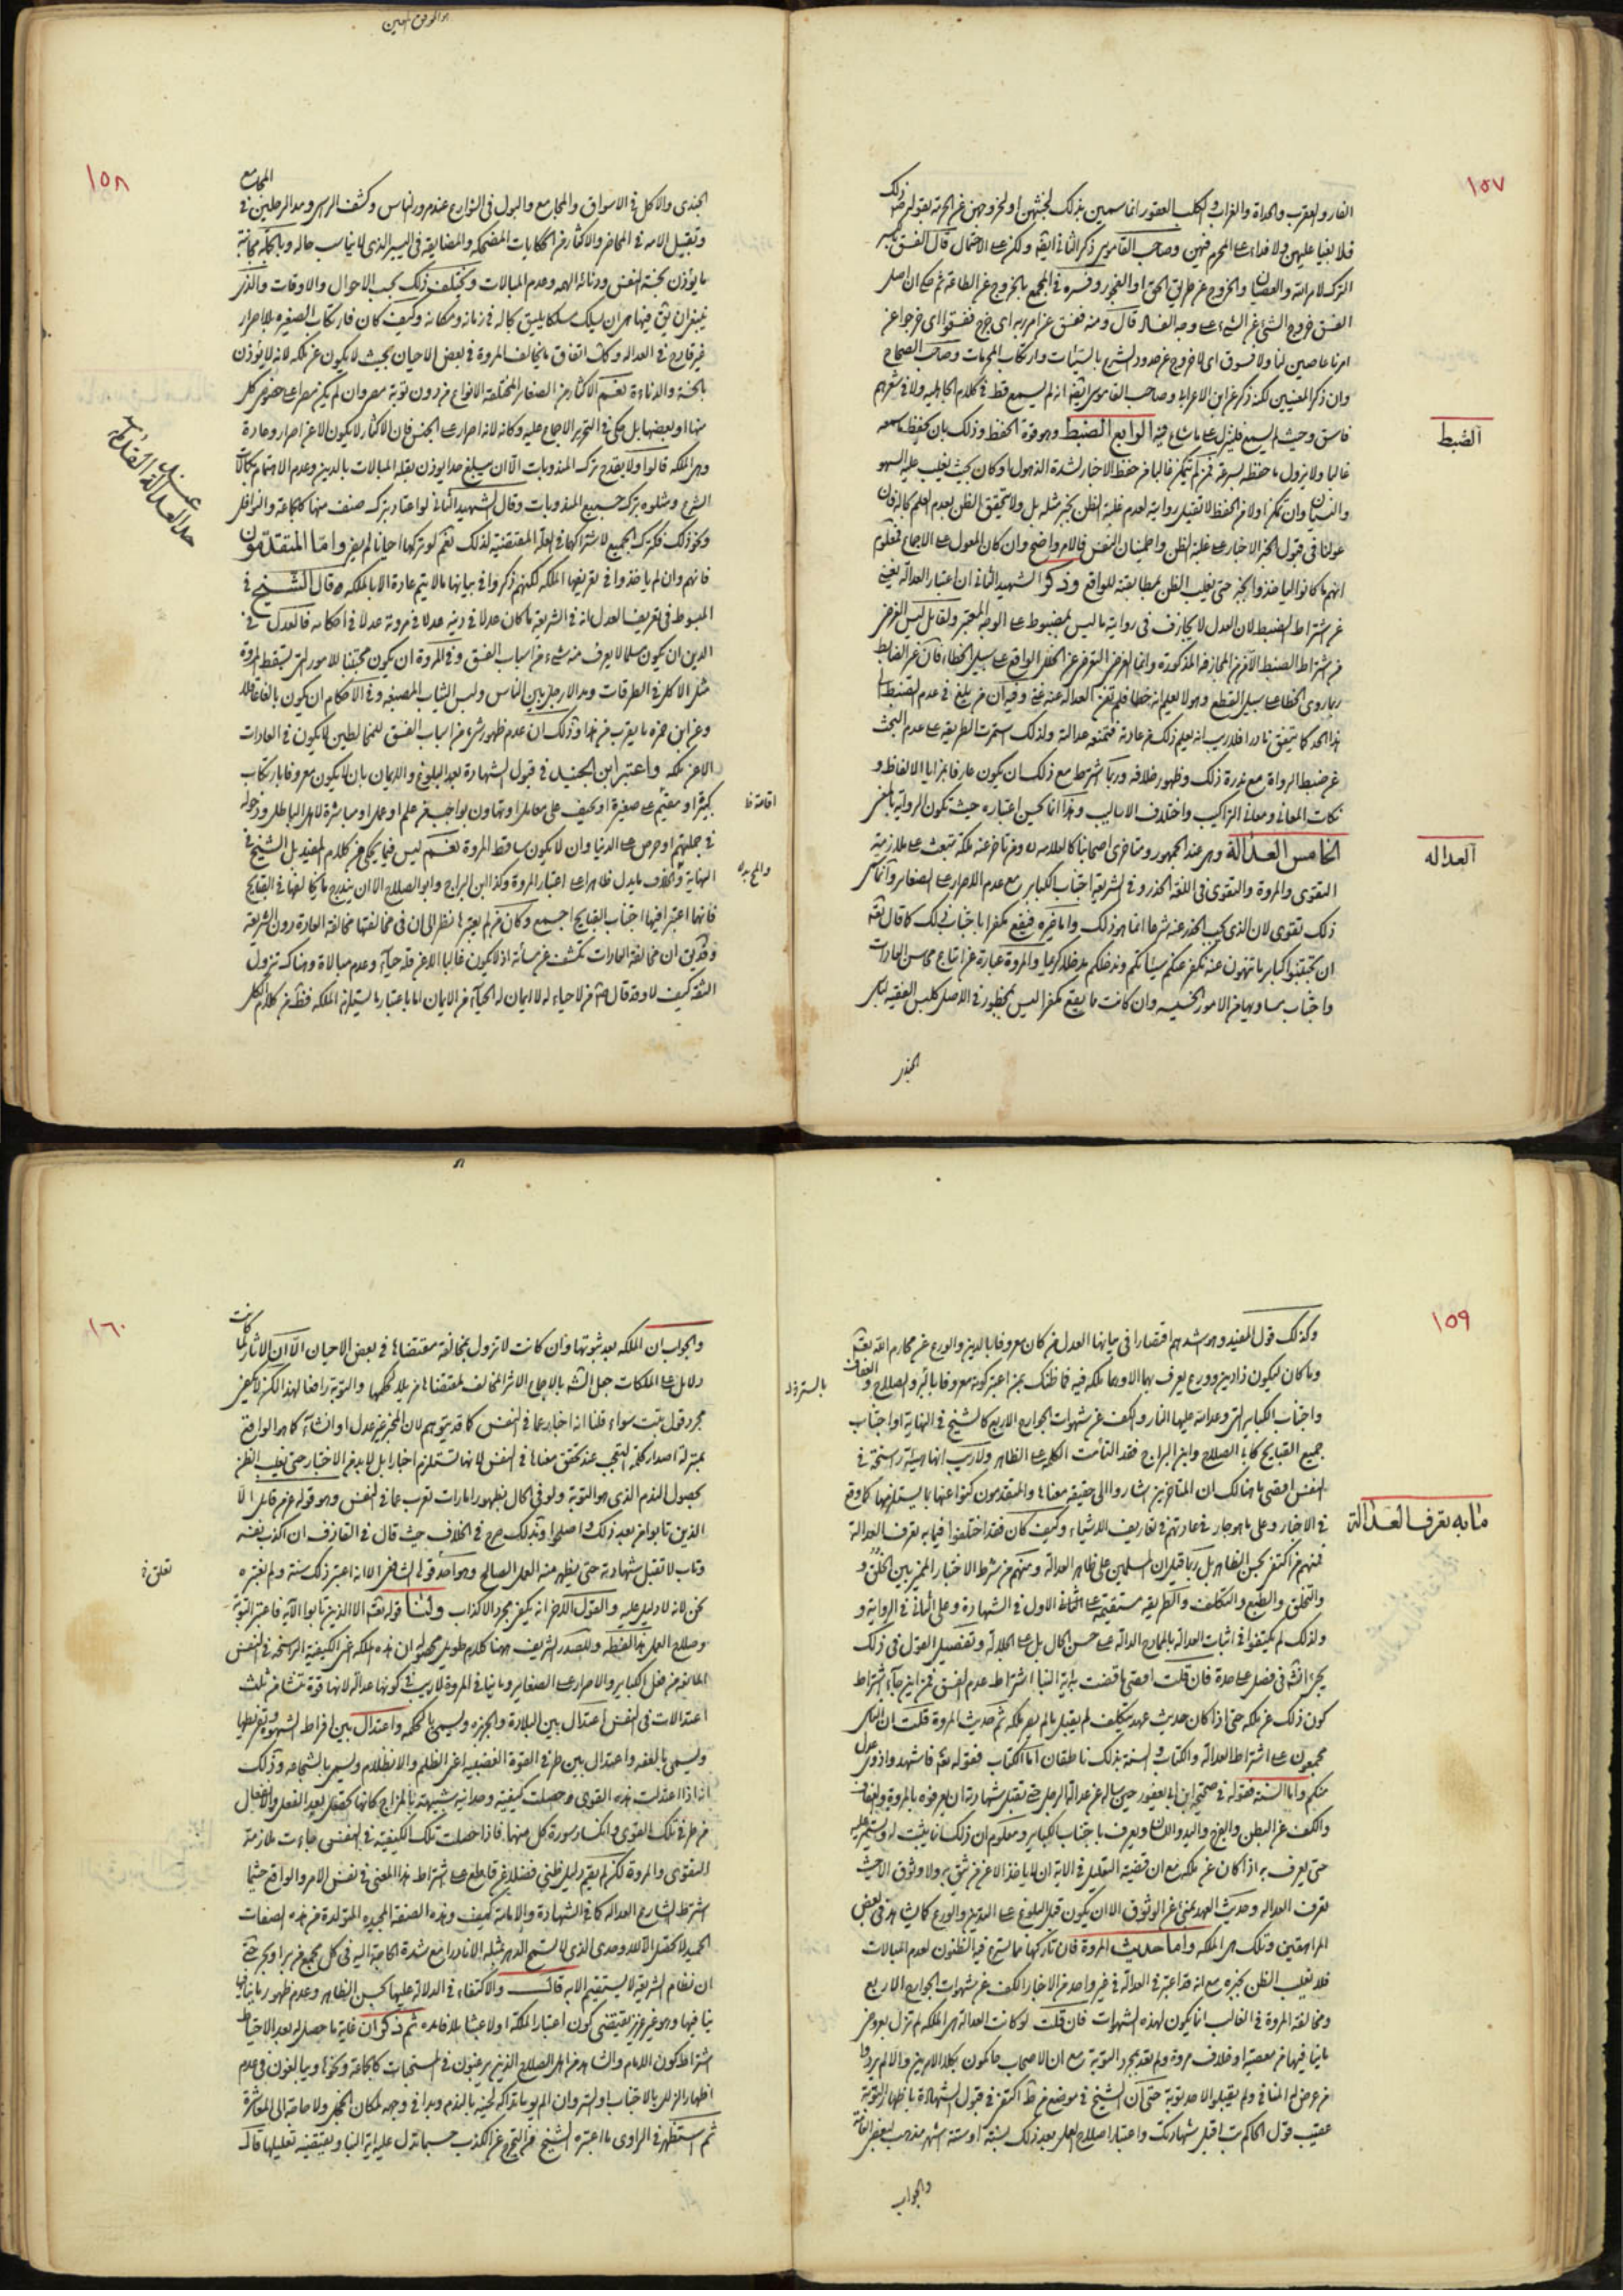 ١٥٧
الفار والعقرب والحداة والغراب والكلب العقور انما سمين بذلك لخبثهن او لخروجهن عن الحرمة
فلا بغيا عليهن ولا فداء على المحرم فيهن وصاحب القاموس ذكر الثاني ايضا ولكن على الاحتمال قال الفسق بالكسر
الترك لامر الله والعصيان والخروج عن طريق الحق او الفجور وفسره في المجمع بالخروج عن الطاعة ثم حكى ان اصل
الفسق خروج الشئ عن الشئ على وجه الفساد قال ومنه ففسق عن امر ربه اي خرج ففسقوا اي خرجوا عن
امرنا عاصين لنا ولا فسوق اي لا خروج عن حدود الشرع بالسيئات وارتكاب المحرمات وصاحب الصحاح
وان ذكر المعنيين لكنه ذكر عن ابن الاعرابي وصاحب القاموس ايضا انه لم يسمع قط في كلام الجاهلية ولا في شعرهم
فاسق وحيث لم يسمع فلينزل على ما شاع فيه الرابع الضبط وهو قوة الحفظ وذلك بان يحفظ ما سمعه
الضبط
غالبا ولا يزول ما حفظه بسرعة فمن لم يتمكن غالبا من حفظ الاخبار لشدة الذهول او كان بحيث يغلب عليه السهو
والنسيان وان تمكن اولا من الحفظ لا تقبل روايته لعدم غلبة الظن بخبر مثله بل ولا يتحقق الظن لعدم العلم بكماله فان
عولنا في قبول الخبر الاخبار على غلبة الظن واطمينان النفس فالامر واضح وان كان المعول على الاجماع فمعلوم
انهم ما كانوا لياخذوا الخبر حتى يغلب الظن بمطابقته للواقع وذكر الشهيد الثاني ان اعتبار العدالة يغني
عن اشتراط الضبط لان العدل لا يجازف في روايته ما ليس بمضبوط على الوجه المعتبر ولقائل ليس الغرض
من اشتراط الضبط الا من المجازفة المذكورة وانما الغرض التحرز عن الخلل الواقع على سبيل الخطاء فان غير الضابط
ربما روى الخطا على سبيل القطع وهو لا يعلم انه خطا فلم تغن العدالة عنه غنى وفيه ان من بلغ في عدم الضبط الى
هذا الحد كما يتفق نادرا فلا ريب انه يعلم ذلك من عادته فتمنعه عدالته ولذلك استمرت الطريقة على عدم البحث
عن ضبط الرواة مع ندرة ذلك وظهور خلافه وربما اشترط مع ذلك ان يكون عارفا بمزايا الالفاظ و
نكات المعاني ومعاني التراكيب واختلاف الاساليب وهذا انما يحسن اعتباره حيث تكون الرواية بالمعنى
الخامس العدالة وهي عند الجمهور ومتاخري اصحابنا كالعلامة ومن تاخر عنه ملكة تبعث على ملازمة
العدالة
التقوى والمروة والتقوى في اللغة الحذر وفي الشريعة اجتناب الكباير مع عدم الاصرار على الصغاير وانما كان
ذلك تقوى لان الذي يجب الحذر عنه شرعا انما هو ذلك واما غيره فيقع مكفرا باجتناب ذلك كما قال تعالى
ان تجتنبوا كباير ما تنهون عنه نكفر عنكم سيئاتكم وندخلكم مدخلا كريما والمروة عبارة عن اتباع محاسن العادات
واجتناب مساويها من الامور الخسيسة وان كانت ما يقع مكفرا ليس بمحظور في الاصل كلبس الفقيه لباس
الجندي
١٥٨
الجندى والاكل في الاسواق والمجامع والبول في الشوارع عند مرور الناس وكشف الراس ومد الرجلين في المجامع
وتقبيل الامة في المحاضر والاكثار من الحكايات المضحكة والمضايقة في اليسير الذي لا يناسب حاله وبالجملة مجانبة
ما يؤذن بخسة النفس ودنائة الهمة وعدم المبالات ويختلف ذلك بحسب الاحوال والاوقات والذي
ينبغي ان يق فيها هي ان يسلك مسلكا يليق بحاله في زمانه ومكانه وكيف كان فارتكاب الصغيرة بلا اصرار
غير قادح في العدالة وكذا اتفاق ما يخالف المروة في بعض الاحيان بحيث لا يكون عن ملكة لانه لا يؤذن
بالخسة والدناءة نعم الاكثار من الصغائر المختلفة الانواع من دون توبة مصر وان لم يكن مصرا على خصوص كل
منها او بعضها بل حكى في التحرير الاجماع عليه وكانه لانه اصرار على الجنس فان الاكثار لا يكون الا عن اصرار وعادة
وهي الملكة قالوا ولا يقدح ترك المندوبات الا ان يبلغ حدا يوذن بقلة المبالات بالدين وعدم الاهتمام بكمالات
الشرع ومثلوه بترك جميع المندوبات وقال الشهيد الثاني لو اعتاد بترك صنف منها كالجماعة والنوافل
ونحو ذلك فكترك الجميع لاشتراكهما في العلة المقتضية لذلك نعم لو تركها احيانا لم يضر واما المتقدمون
فانهم وان لم ياخذوا في تعريفها الملكة لكنهم ذكروا في بيانها ما لا يتم عادة الا بالملكة وقال الشيخ في
المبسوط في تعريف العدل انه في الشريعة ما كان عدلا في دينه عدلا في مروته عدلا في احكامه فالعدل في
الدين ان يكون مسلما لا يعرف منه شئ من اسباب الفسق وفي المروة ان يكون مجتنبا للامور التي تسقط المروة
مثل الاكل في الطرقات ومد الارجل بين الناس ولبس الثياب المصبغة وفي الاحكام ان يكون بالغا عاقلا
وعن ابن حمزه ما يقرب من هذا وذلك ان عدم ظهور شئ من اسباب الفسق للمخالطين لا يكون في العادات
الا عن ملكة واعتبر ابن الجنيد في قبول الشهادة بعد البلوغ والايمان بان لا يكون معروفا بارتكاب
كبيرة او مقيم على صغيرة او بحيف على معامل او بتهاون بواجب من علم او عمل او مباشرة لاهل الباطل ودخوله
في جملتهم او حرص على الدنيا وان لا يكون ساقط المروة نعم ليس فيما يحكى من كلام المفيد بل الشيخ في
النهاية والخلاف ما يدل ظاهرا على اعتبار المروة وكذا ابن البراج وابو الصلاح الا ان يندرج ما يخالفها في القبايح
فانهما اعتبرا فيها اجتناب القبايح اجمع وكان من لم يعتبرها نظر الى ان في مخالفتها مخالفة العادة دون الشريعة
وقد يق ان مخالفة العادات تكشف عن سائة اذ لا يكون غالبا الا عن قلة حياء وعدم مبالاة وهناك تزول
الثقة كيف لا وقد قال من لا حياء له لا ايمان له الحياء من الايمان اما باعتبار ما يستلزم الملكة فظهر من كلام الكل
١٥٩
وكذلك قول المفيد وهو اشدهم اقتصارا في بيانها العدل من كان معروفا بالدين والورع عن محارم الله تعالى
وما كان ليكون ذا دين وورع يعرف بهما الا وهما ملكة فيه فما ظنك بمن اعتبر كونه معروفا بالستر والصلاح والعفاف
واجتناب الكباير التي وعد الله عليها النار والكف عن شهوات الجوارح الاربع كالشيخ في النهاية او اجتناب
جميع القبايح كابي الصلاح وابن البراج فقد التأمت الكلمة على الظاهر ولا ريب انها هيئة راسخة في
النفس اقصى ما هنالك ان المتاخرين اشاروا الى حقيقة معناها والمتقدمون كنوا عنها بما يستلزمها كما وقع
في الاخبار وعلى ما هو جار في عادتهم في تعاريف الاشياء وكيف كان فقد اختلفوا فيما به تعرف العدالة
ما به تعرف العدالة
فمنهم من اكتفى بحسن الظاهر بل ربما قيل ان المسلمين على ظاهر العدالة ومنهم من شرط الاختبار المميز بين الخلق و
والتخلق والطبع والتكلف والطريقة مستقيمة على الاول في الشهادة وعلى الثاني في الرواية و
ولذلك لم يكتفوا في اثبات العدالة بالمدايح الدالة على حسن الحال بل على الجلالة وتفصيل القول في ذلك
يجئ انشه في فصل على حدة فان قلت اقصى ما قضت به اية النبا اشتراط عدم الفسق فمن اين جاء اشتراط
كون ذلك عن ملكة حتى اذا كان حديث عهد بتكليف لم يقبل ما لم يصر ملكة ثم حديث المروة قلت ان الناس
مجمعون على اشتراط العدالة والكتاب والسنة بذلك ناطقان اما الكتاب فقوله تعالى فاشهدوا ذوي عدل
منكم واما السنة فقوله في صحيحة ابن ابي يعفور حين ساله عن عدالة الرجل حتى تقبل شهادته ان يعرفوه بالمروة والعفاف
والكف عن البطن والفرج واليد واللسان ويعرف باجتناب الكباير ومعلوم ان ذلك انما يثبت له ويستمر عليه
حتى يعرف به اذا كان عن ملكة مع ان قضية التعليل في الاية ان لا ياخذ الا عمن يثق به ولا وثوق الا حيث
تعرف العدالة وحديث العهد بمنئ عن الوثوق الا ان يكون قبل البلوغ على التدين والورع كما يشاهد في بعض
المراهقين وتلك هي الملكة واما حديث المروة فان تاركها مما يسرع فيه الظنون لعدم المبالات
فلا يغلب الظن بخبره مع انه قد اعتبر في العدالة في غير واحد من الاخبار الكف عن شهوات الجوارح الاربع
ومخالفة المروة في الغالب انما يكون لهذه الشهوات فان قلت لو كانت العدالة هي الملكة لم تزل بعروض
ما ينافيها من معصية او خلاف مروة ولم تعد بمجرد التوبة مع ان الاصحاب حاكمون بكلا الامرين والا لم يردوا
من عرض له المنافي ولم يقبلوا الا حد توبة حتى ان الشيخ في موضع من ط اكتفى في قبول الشهادة باظهار التوبة
عقيب قول الحاكم تب اقبل شهادتك واعتبار اصلاح العمل بعد ذلك بسنة او ستة اشهر مذهب لبعض العامة
والجواب
١٦٠
والجواب ان الملكة بعد ثبوتها وان كانت لا تزول بمخالفة مقتضاها في بعض الاحيان الا ان الاثار لما كانت
دلايل على الملكات جعل الشه بالاجماع الاثر المخالف لمقتضاها مزيلا لحكمها والتوبة رافعا لهذا لكن لا يكفي
مجرد قول تبت سواء قلنا انه اخبار عما في النفس كما قد يتوهم لان المخبر غير عدل او انشاء كما هو الواقع
بمنزلة اصدار كلمة التعجب عند تحقق معناها في النفس لانها تستلزم اخبارا بل لا بد من الاختبار حتى يغلب الظن
بحصول الندم الذي هو التوبة ولو في الحال بظهور امارات تعرب عما في النفس وهو قوله عز من قائل الا
الذين تابوا من بعد ذلك واصلحوا وبذلك صرح في الخلاف حيث قال في القاذف ان اكذب نفسه
وتاب لا تقبل شهادته حتى يظهر منه العمل الصالح وهو احد قولي الشافعي الا انه اعتبر ذلك سنة ولم نعتبره
نحن لانه لا دليل عليه والقول الاخر انه يكفي مجرد الاكذاب ولنا قوله تعالى الا الذين تابوا الآية فاعتبر التوبة
وصلاح العمل هذا لفظه وللصدر الشريف ههنا كلام طويل محصله ان هذه الملكة اعني الكيفية الراسخة في النفس
المانعة من فعل الكباير والاصرار على الصغاير وما ينافي المروة لا ريب في كونها عدالة لانها قوة تنشا من ثلث
اعتدالات في النفس اعتدال بين البلادة والجربزة ويسمى بالحكمة واعتدال بين افراط الشهوة وتفريطها
ويسمى بالعفة واعتدال بين طرفي القوة الغضبية اعني الظلم والانظلام ويسمى بالشجاعة وذلك
انه اذا اعتدلت هذه القوى وحصلت كيفية وحدانية شبيهة بالمزاج كانها تحصل بعد الفعل والانفعال
من طرفي تلك القوى وانكسار سورة كل منهما فاذا حصلت تلك الكيفية في النفس جاءت ملازمة
التقوى والمروة لكن لم يقم دليل ظني فضلا عن قاطع على اشتراط هذا المعنى في نفس الامر والواقع حيثما
اشترط الشارع العدالة كما في الشهادة والامامة كيف وهذه الصفة الحميدة المتولدة من هذه الصفات
الحميدة لا تحصل الا للاوحدي الذي لا يسمح الدهر بمثله الا نادرا مع شدة الحاجة اليه في كل مجمع من بر او بحر حتى
ان نظام الشريعة لا يستقيم الا به قال والاكتفاء في الدلالة عليها بحسن الظاهر وعدم ظهور ما ينافيها
ينافيها وهو غير عزيز يقتضي كون اعتبار الملكة اولا عبثا بلا فائدة ثم ذكر ان غاية ما حصل له بعد الاحتياط
اشتراط كون الامام والشاهد من اهل الصلاح الذين يرغبون في المستحبات كالجماعة ونحوها ويبالغون في عدم
اظهار الزلل بالاجتناب او الستر وان لم يوبا تداركه لحينه بالندم وبدا في وجهه لمكان الخجل ولا حاجة الى المعاشرة
ثم استظهر في الراوي ما اعتبره الشيخ من التحرج عن الكذب حسبما تدل عليه اية النبا ويقتضيه تعليلها قال